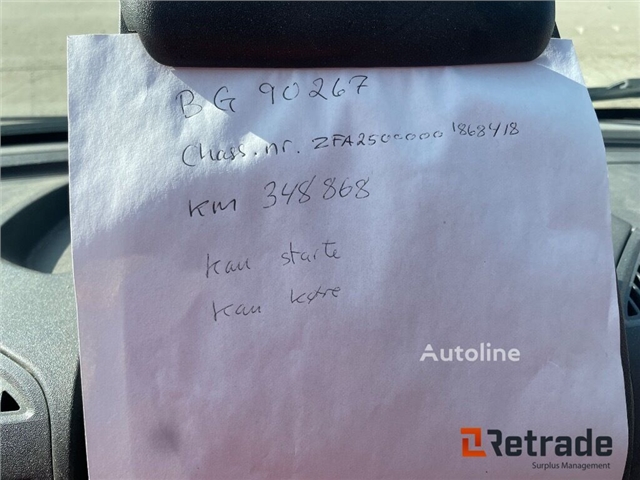 BG 90267
Chass.nr. ZFA25000001868418
KM 348868
Kan starte
Kan køre
Autoline
Retrade
Surplus Management